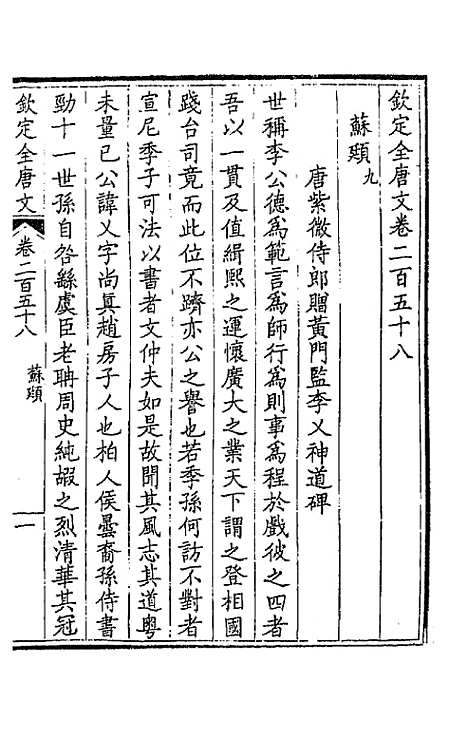 欽定全唐文卷二百五十八
蘇頲九
唐紫微侍郎贈黃門監李乂神道碑
世稱李公德爲範言爲師行爲則事爲程於戲彼之四者
吾以一貫及值緝熙之運懷廣大之業天下謂之登相國
踐台司竟而此位不躋亦公之譽也若季孫何訪不對者
宣尼季子可法以書者文仲夫如是故聞其風志其道粤
未量已公諱乂字尚眞趙房子人也柏人侯曇裔孫侍書
勁十一世孫自咎繇虞臣老聃周史純嘏之烈清華其冠
欽定全唐文
卷二百五十八
蘇頲
一